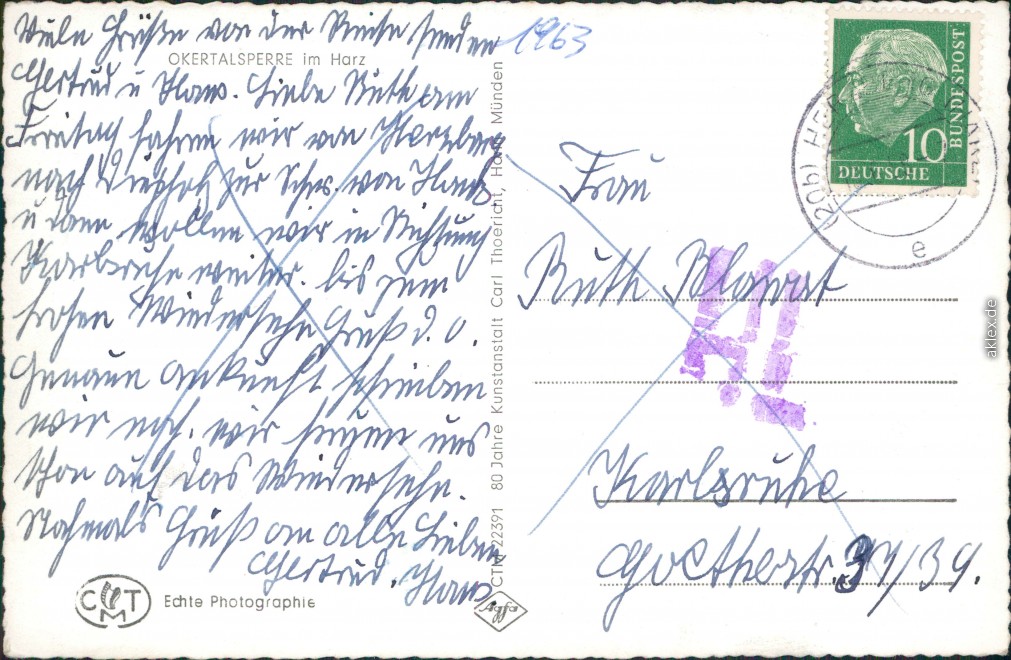 Viele Grüße von der Reise senden
OKERTALSPERRE im Harz
Gertrud u Hans. Liebe Ruth am
Freitag fahren wir von Herzberg
nach Diepholz zur Schw. von Hans
u dann wollen wir in Richtung
Karlsruhe weiter. bis zum
frohen Wiedersehn Gruß d. O.
Genaue Ankunft schreiben
wir noch. wir freuen uns
schon auf das Wiedersehn.
Nochmals Gruß an alle Lieben
Gertrud. Hans
CTM
Echte Photographie
CTM 22391 80 Jahre Kunstanstalt Carl Thoericht, Hann. Münden
Agfa
1963
10
DEUTSCHE
BUNDESPOST
(20b) HE
e
Frau
Ruth Blawat
Karlsruhe
Goethestr. 37/39.
aklex.de